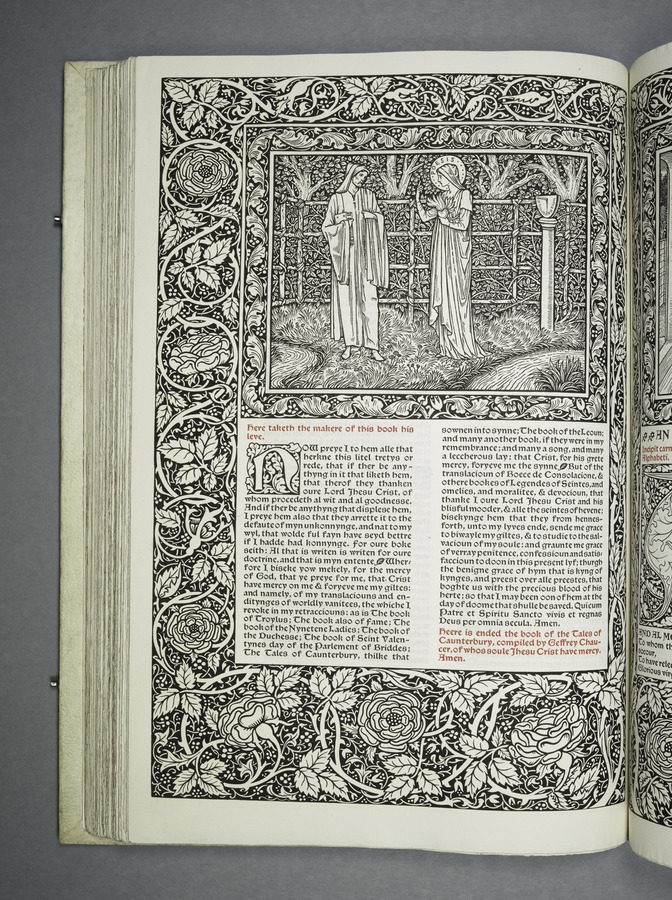 Here taketh the makere of this book his
leve.
NOW preye I to hem alle that
herkne this litel tretys or
rede, that if ther be any-
thyng in it that liketh hem,
that therof they thanken
oure Lord Jhesu Crist, of
whom procedeth al wit and al goodnesse.
And if ther be anythyng that displese hem,
I preye hem also that they arrette it to the
defaute of myn unkonnynge, and nat to my
wyl, that wolde ful fayn have seyd bettre
if I hadde had konnynge. For oure boke
seith: Al that is writen is writen for oure
doctrine, and that is myn entente. Wher-
fore I biseke yow mekely, for the mercy
of God, that ye preye for me, that Crist
have mercy on me & foryeve me my giltes:
and namely, of my translaciouns and en-
ditynges of worldly vanitees, the whiche I
revoke in my retracciouns: as is The book
of Troylus; The book also of Fame; The
book of the Nynetene Ladies; The book of
the Duchesse; The book of Seint Valen-
tynes day of the Parlement of Briddes;
The Tales of Caunterbury, thilke that
sownen into synne; The book of the Leoun;
and many another book, if they were in my
remembrance; and many a song, and many
a leccherous lay; that Crist, for his grete
mercy, foryeve me the synne. But of the
translacioun of Boece de Consolacione, &
othere bookes of Legendes of Seintes, and
omelies, and moralitee, & devocioun, that
thanke I oure Lord Jhesu Crist and his
blisful mooder, & alle the seintes of hevene;
bisekynge hem that they from hennes-
forth, unto my lyves ende, sende me grace
to biwayle my giltes, & to studie to the sal-
vacioun of my soule: and graunte me grace
of verray penitence, confessioun and satis-
faccioun to doon in this present lyf; thurgh
the benigne grace of hym that is kyng of
kynges, and preest over alle preestes, that
boghte us with the precious blood of his
herte; so that I may been oon of hem at the
day of doome that shulle be saved. Quicum
Patre et Spiritu Sancto vivis et regnas
Deus per omnia secula. Amen.
Heere is ended the book of the Tales of
Caunterbury, compiled by Geffrey Chau-
cer, of whos soule Jhesu Crist have mercy.
Amen.
AN
Incipit carm
Alphabeti.
AND AL MO
To whom th
To have rele
Glorious virg